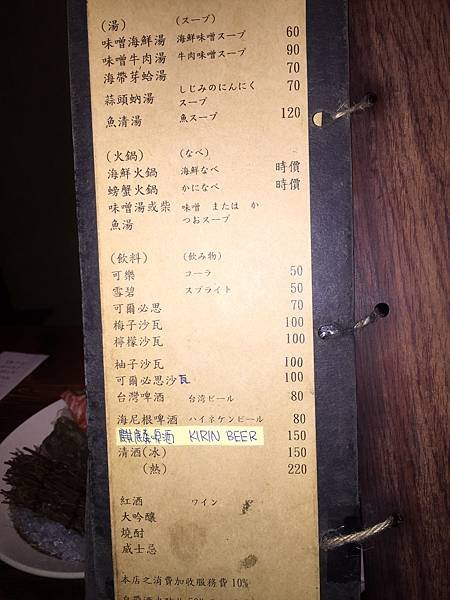 (湯) (スープ)
味噌海鮮湯 海鮮味噌スープ 60
味噌牛肉湯 牛肉味噌スープ 90
海帶芽蛤湯 70
蒜頭蚋湯 しじみのにんにく 70
スープ
魚清湯 魚スープ 120
(火鍋) (なべ)
海鮮火鍋 海鮮なべ 時價
螃蟹火鍋 かになべ 時價
味噌湯或柴 味噌 または か
魚湯 つおスープ
(飲料) (飲み物)
可樂 コーラ 50
雪碧 スプライト 50
可爾必思 70
梅子沙瓦 100
檸檬沙瓦 100
柚子沙瓦 100
可爾必思沙瓦 100
台灣啤酒 台湾ビール 80
海尼根啤酒 ハイネケンビール 80
麒麟啤酒 KIRIN BEER 150
清酒(冰) 150
(熱) 220
紅酒 ワイン
大吟釀
燒酎
威士忌
本店之消費加收服務費10%